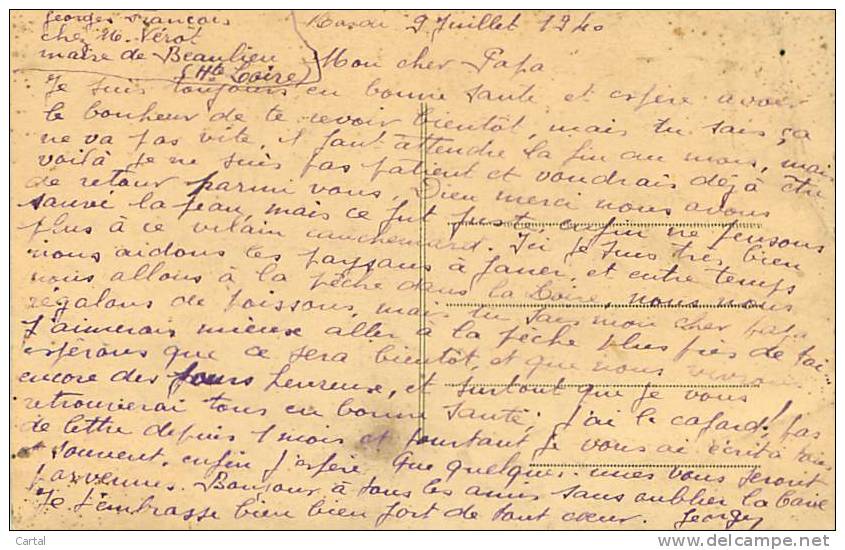 Georges François
chez M. Vérot
maire de Beaulieu
(Hte Loire)
9 Juillet 1940
Mon cher Papa
Je suis toujours en bonne santé et espère avoir
le bonheur de te revoir bientôt, mais tu sais ça
ne va pas vite, il faut attendre la fin du mois, mais
voilà je ne suis pas patient et voudrais déjà être
de retour parmi vous. Dieu merci nous avons
sauvé la peau, mais ce fut juste, enfin ne pensons
plus à ce vilain cauchemard. Ici je suis très bien
nous aidons les paysans à faner, et entre temps
nous allons à la pêche dans la Loire, nous nous
régalons de poissons, mais tu sais mon cher papa
j'aimerais mieux aller à la pêche plus près de toi...
espérons que ce sera bientôt, et que nous vivrons
encore des jours heureux, et surtout que je vous
retrouverai tous en bonne santé; j'ai le cafard! pas
de lettre depuis 1 mois et pourtant je vous ai écrit à tous
et souvent, enfin j'espère que quelques-unes vous seront
parvenues. Bonjour à tous les amis sans oublier la
Je t'embrasse bien bien fort de tout coeur. Georges
Delcampe.net